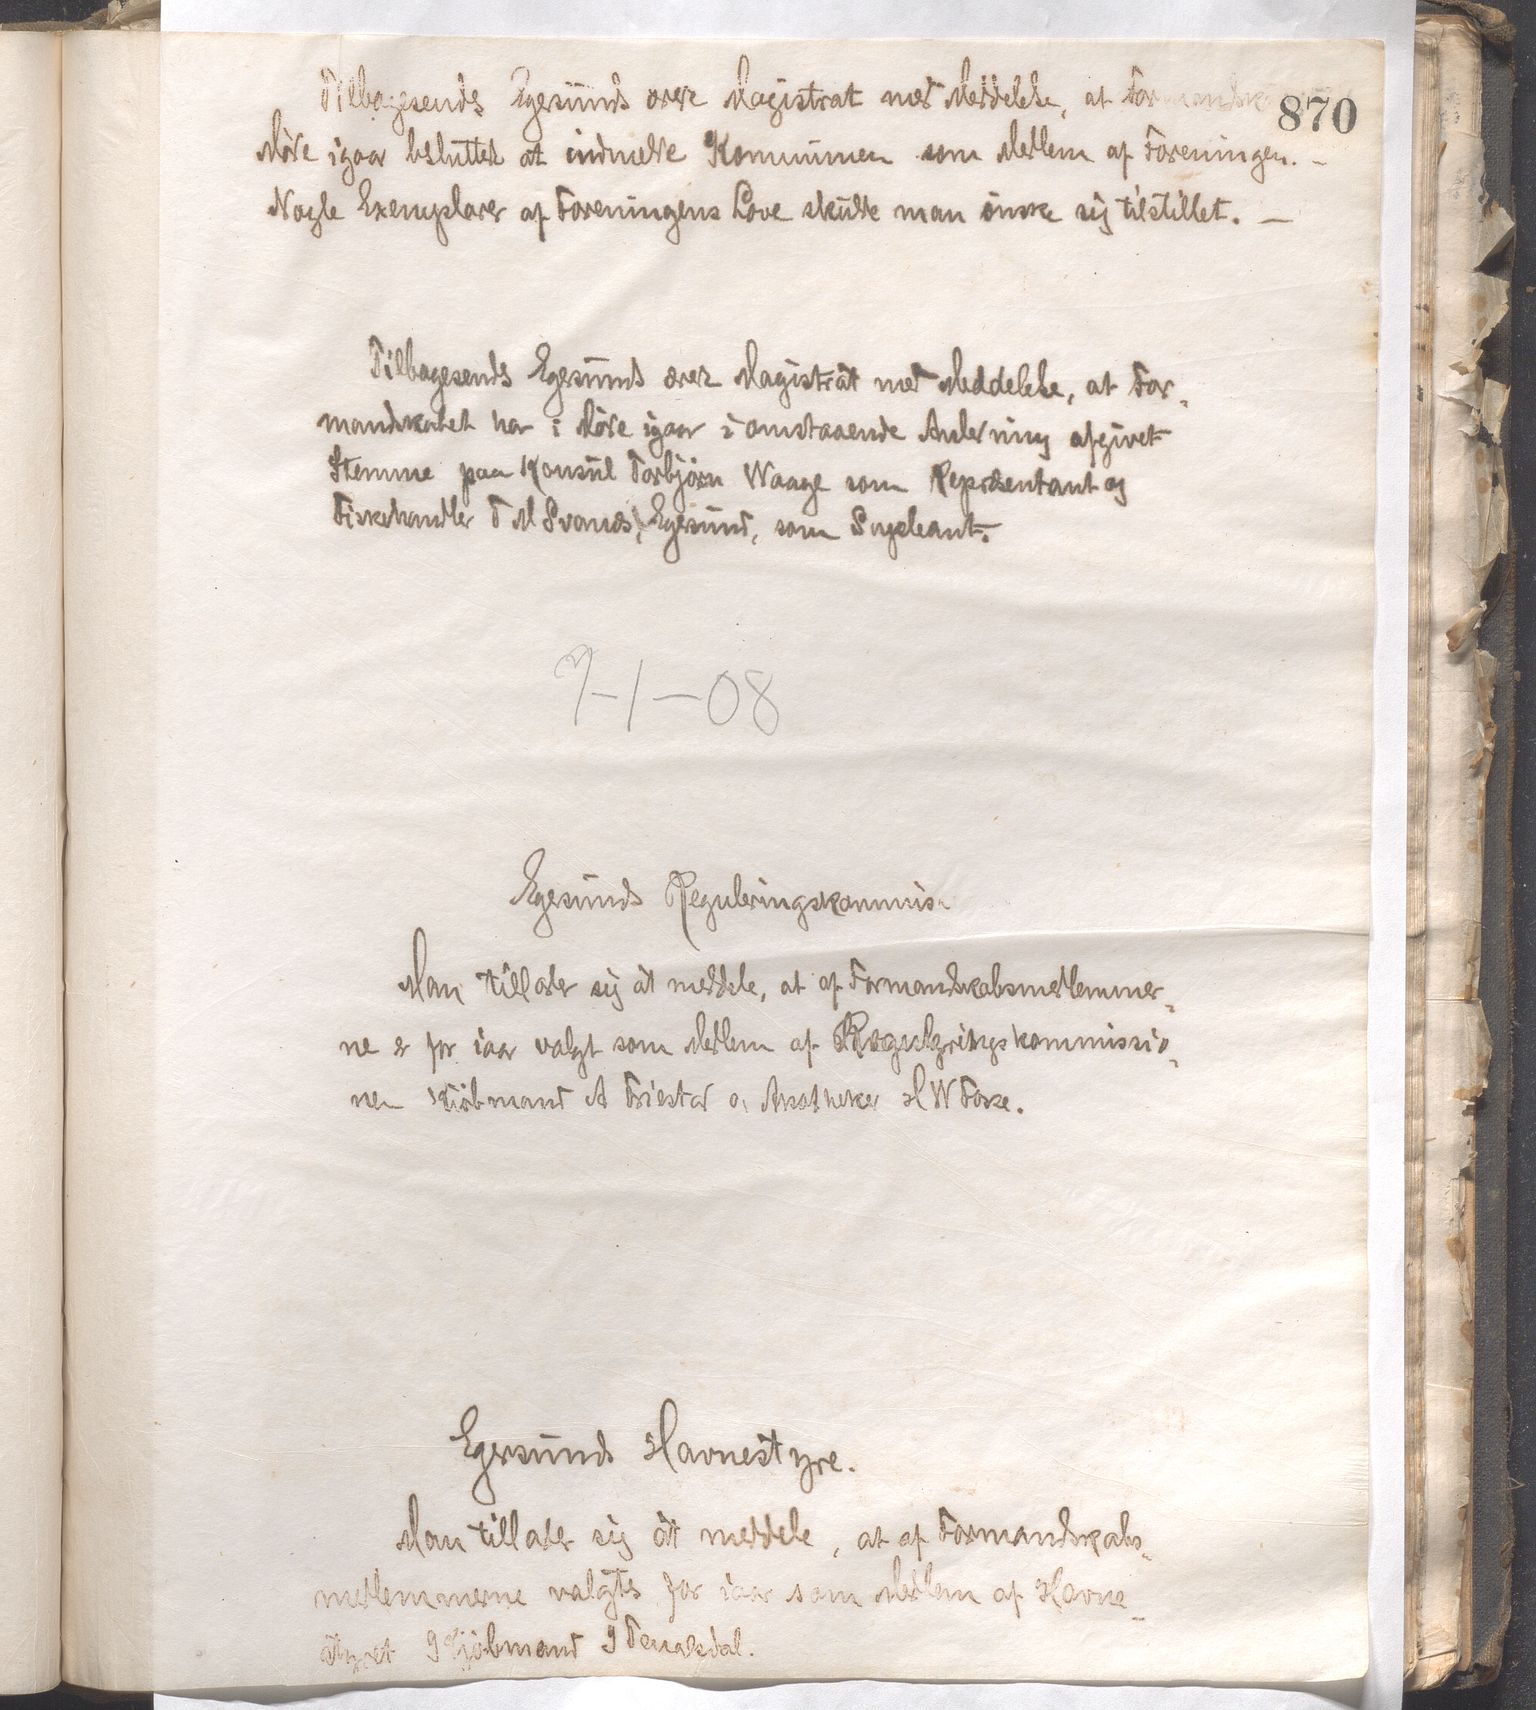 870
Tilbagesendes Egersunds ærede Magistrat med Meddelelse, at Formandsk
Møde igaar besluttet at indmelde Kommunen som Medlem af Foreningen. -
Nogle Exemplarer af Foreningens Love skulde man ønske sig tilstillet. -
Tilbagesendes Egersunds ærede Magistrat med Meddelelse, at For-
mandskabet har i Møde igaar i omstaaende Anledning afgivet
Stemme paa Konsul Torbjørn Waage som Repræsentant og
Fiskehandler T M Svanes, Egersund, som Supleant.
7-1-08
Egersunds Reguleringskommis.
Man tillader sig at meddele, at af Formandskabsmedlemmer-
ne er for iaar valgt som Medlem af Reguleringskommissio-
nen Kjøbmand A Friestad og Apotheker H W Foske.
Egersunds Havnestyre.
Man tillader sig at meddele, at af Formandskabs-
medlemmerne valgtes for iaar som Medlem af Havne-
styret Kjøbmand I Tengesdal.